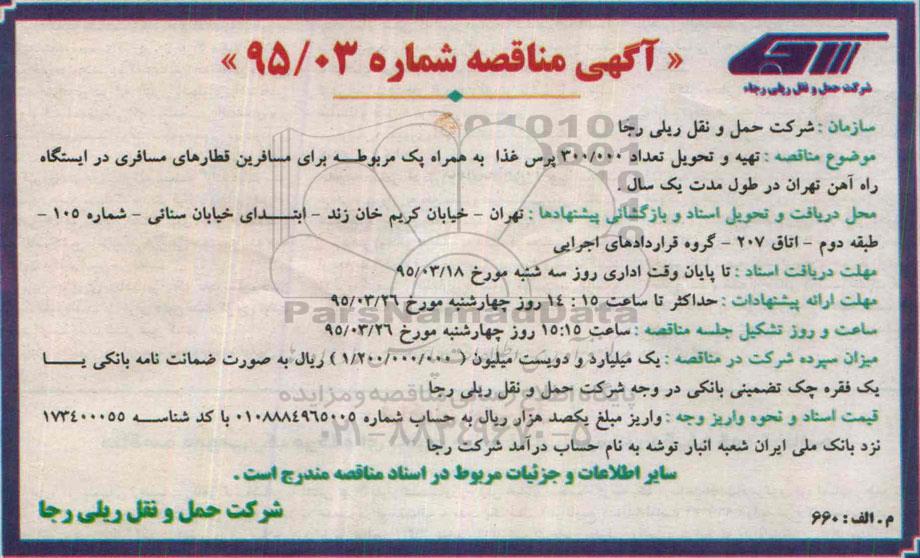 « آگهی مناقصه شماره ۹۵/۰۳ »
شرکت حمل و نقل ریلی رجاء
سازمان : شرکت حمل و نقل ریلی رجا
موضوع مناقصه : تهیه و تحویل تعداد ۳۰۰/۰۰۰ پرس غذا به همراه پک مربوطه برای مسافرین قطارهای مسافری در ایستگاه
راه آهن تهران در طول مدت یک سال .
محل دریافت و تحویل اسناد و بازگشائی پیشنهادها : تهران – خیابان کریم خان زند – ابتدای خیابان سنائی – شماره ۱۰۵ –
طبقه دوم – اتاق ۲۰۷ – گروه قراردادهای اجرایی
مهلت دریافت اسناد : تا پایان وقت اداری روز سه شنبه مورخ ۹۵/۰۳/۱۸
مهلت ارائه پیشنهادات : حداکثر تا ساعت ۱۵ : ۱۴ روز چهارشنبه مورخ ۹۵/۰۳/۲۶
ساعت و روز تشکیل جلسه مناقصه : ساعت ۱۵:۱۵ روز چهارشنبه مورخ ۹۵/۰۳/۲۶
میزان سپرده شرکت در مناقصه : یک میلیارد و دویست میلیون ( ۱/۲۰۰/۰۰۰/۰۰۰ ) ریال به صورت ضمانت نامه بانکی یا
یک فقره چک تضمینی بانکی در وجه شرکت حمل و نقل ریلی رجا
قیمت اسناد و نحوه واریز وجه : واریز مبلغ یکصد هزار ریال به حساب شماره ۰۱۰۸۸۸۴۹۶۵۰۰۵ با کد شناسه ۱۷۳۴۰۰۰۵۵
نزد بانک ملی ایران شعبه انبار توشه به نام حساب درآمد شرکت رجا
سایر اطلاعات و جزئیات مربوط در اسناد مناقصه مندرج است .
شرکت حمل و نقل ریلی رجا
م . الف : ۶۶۰
ParsNamadData
پایگاه اطلاع رسانی مناقصه و مزایده
۰۲۱-۸۸۳۴۹۶۷۰-۵